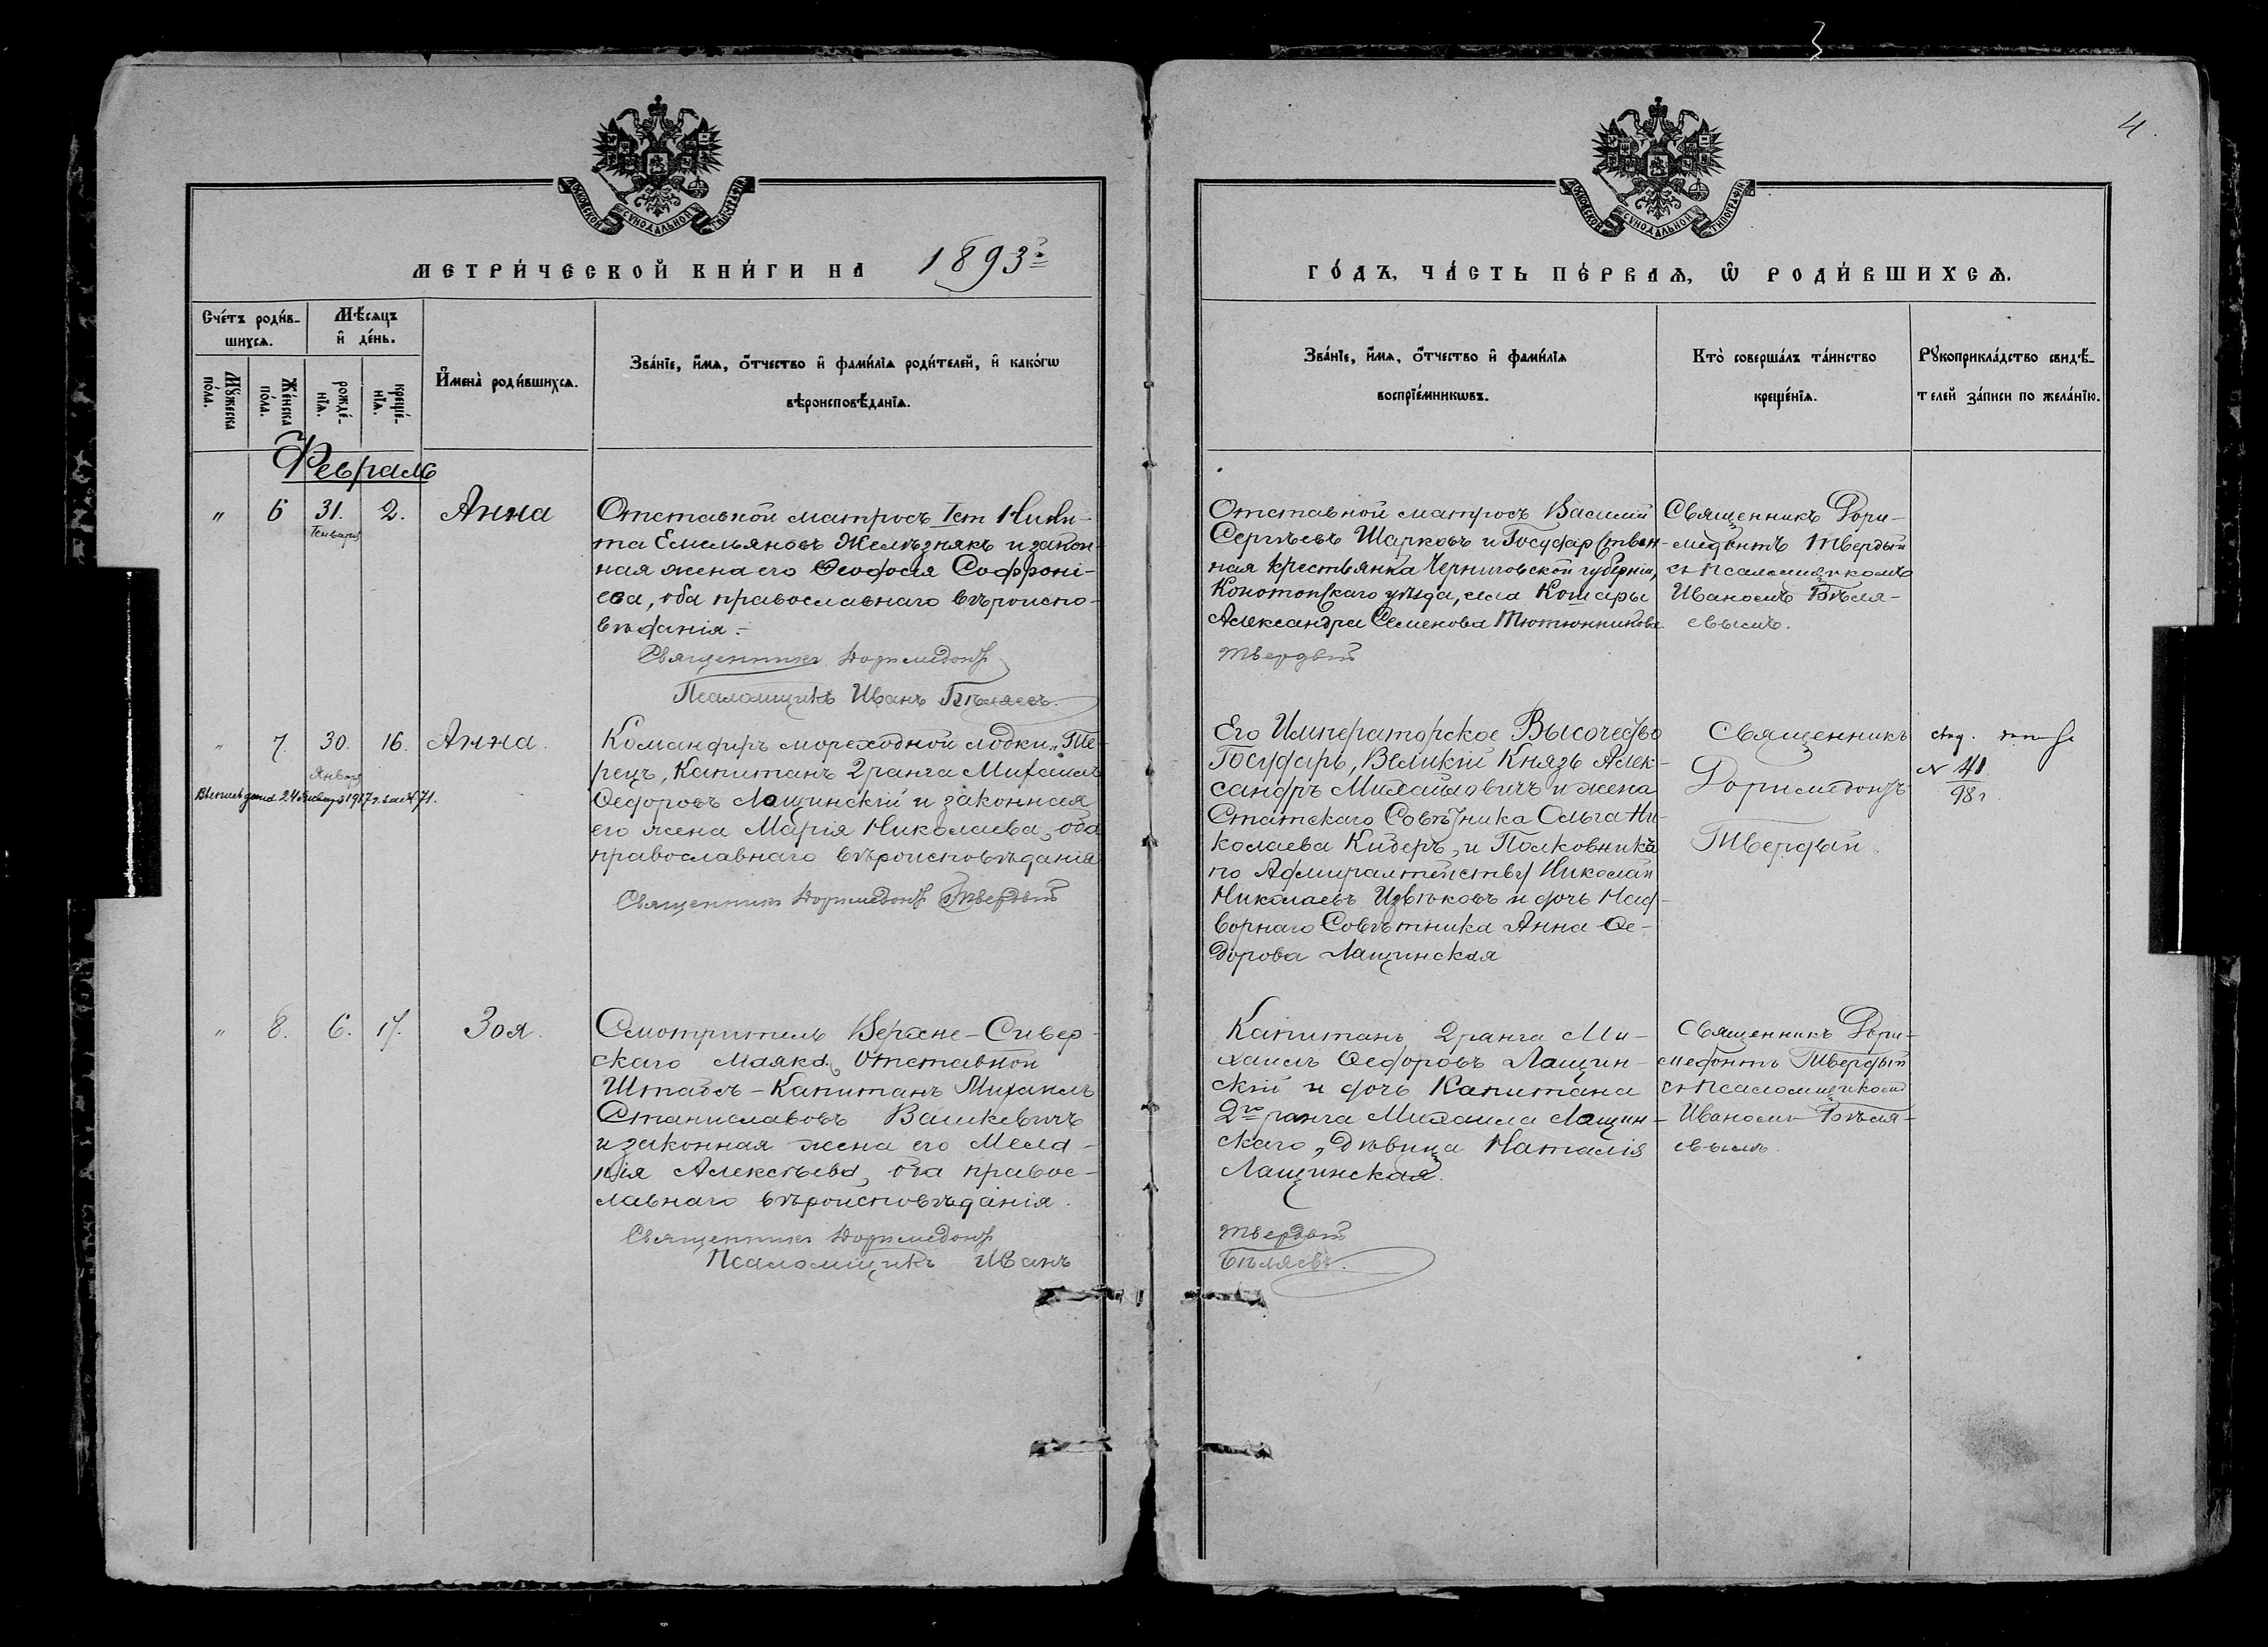 3
4.
МОСКОВСКОЙ СУНОДАЛЬНОЙ ТИПОГРАФІИ
МОСКОВСКОЙ СУНОДАЛЬНОЙ ТИПОГРАФІИ
МЕТРИ́ЧЕСКОЙ КНИ́ГИ НА 1893й
ГО́ДЪ, ЧА́СТЬ ПЕ́РВАѦ, Ѡ҆ РОДИ́ВШИХСѦ.
Сче́тъ роди́в-
шихсѧ.
Мѣ́сѧцъ
и҆ де́нь.
Мꙋ́жеска
по́ла.
Же́нска
по́ла.
рожде́-
нїѧ.
креще́-
нїѧ.
И҆мена̀ роди́вшихсѧ.
Зва́нїе, и҆́мѧ, ѻ҆́тчество и҆ фами́лїѧ роди́телей, и҆ како́гѡ
вѣроисповѣ́данїѧ.
Зва́нїе, и҆́мѧ, ѻ҆́тчество и҆ фами́лїѧ
воспрїе́мникѡвъ.
Кто̀ соверша́лъ та́инство
креще́нїѧ.
Рꙋкоприкла́дство свидѣ́-
телей за́писи по жела́нїю.
Февраль
" 6 31. 2. Анна
Генваря
Отставной матросъ 1ст Ники-
та Емельяновъ Желѣзнякъ и закон-
ная жена его Ѳеодосія Софроні-
ева, оба православнаго вѣроиспо-
вѣданія.
Священникъ Доримедонтъ
Псаломщикъ Иванъ Бѣляевъ.
Отставной матросъ Василій
Сергѣевъ Шарковъ и Государствен-
ная крестьянка Черниговской губерніи,
Конотопскаго уѣзда, села Кошары
Александра Семенова Тютюнникова
Твердый
Священникъ Дори-
медонтъ Твердый
съ псаломщикомъ
Иваномъ Бѣля-
евымъ.
" 7. 30. 16. Анна.
Января
Выпись дана 24 Января 1917 г. за № 71.
Командиръ мореходной лодки „Ту-
рецъ, Капитанъ 2 ранга Михаилъ
Ѳедоровъ Лащинскій и законная
его жена Марія Николаева, оба
православнаго вѣроисповѣданія
Священникъ Доримедонтъ Твердый
Его Императорское Высочество
Государь, Великій Князь Алек-
сандръ Михайловичъ и жена
Статскаго Совѣтника Ольга Ни-
колаева Кидеръ, и Полковникъ
по Адмиралтейству Николай
Николаевъ Извѣковъ и дочь Над-
ворнаго Совѣтника Анна Ѳе-
дорова Лащинская
Священникъ
Доримедонтъ
Твердый.
N 41
98 г.
" 8. 6. 17. Зоя.
Смотритель Верхне-Сивер-
скаго Маяка, Отставной
Штабсъ-Капитанъ Михаилъ
Станиславовъ Вашкевичъ
и законная жена его Мела-
нія Алексѣева, оба правос-
лавнаго вѣроисповѣданія.
Священникъ Доримедонтъ
Псаломщикъ Иванъ
Капитанъ 2 ранга Ми-
хаилъ Ѳедоровъ Лащин-
скій и дочь Капитана
2го ранга Михаила Лащин-
скаго, дѣвица Наталія
Лащинская.
Твердый
Бѣляевъ.
Священникъ Дори-
медонтъ Твердый
съ псаломщикомъ
Иваномъ Бѣля-
евымъ.